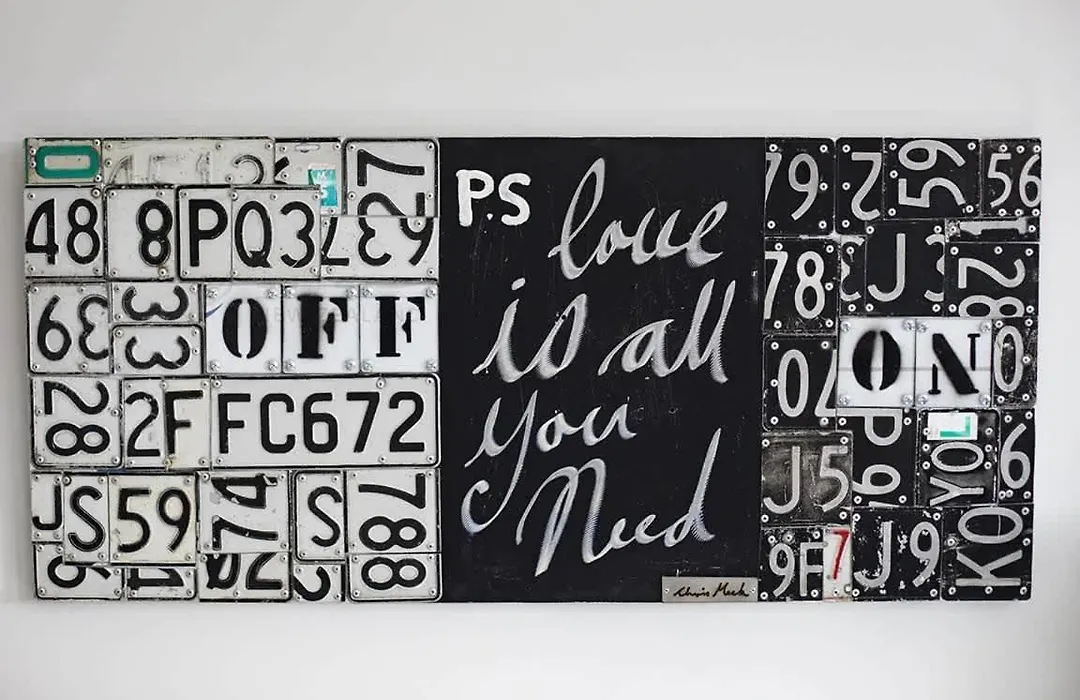 48 8 PQ3
OFF
28 2F FC672
JS 59 74 S 788
PS
love
is all
you
Need
Chris Meek
79 2 59 56
78 J 28
ON
J5 6 YO 6
9F 7 J9 KO